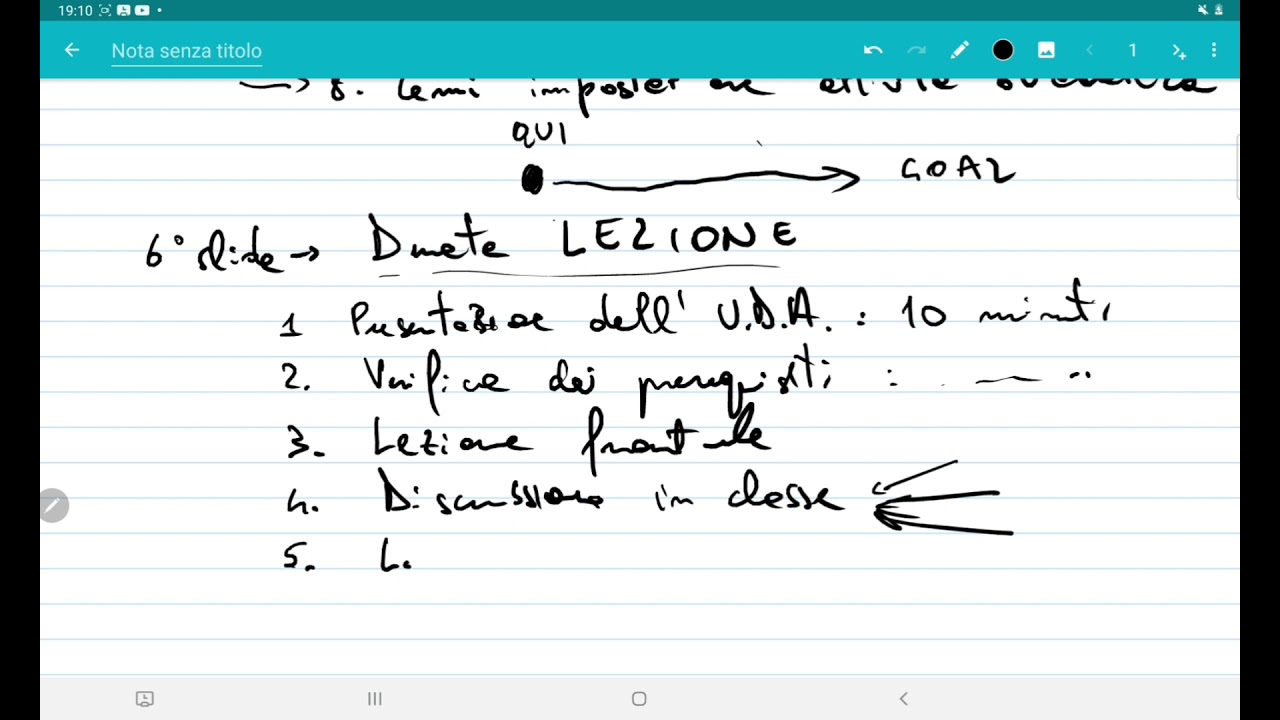 19:10
Nota senza titolo
1
QUI
GOAL
6° slide → Durata LEZIONE
1 Presentazione dell' U.D.A. : 10 minuti
2. Verifica dei prerequisiti :
3. Lezione frontale
4. Discussione in classe
5. L.